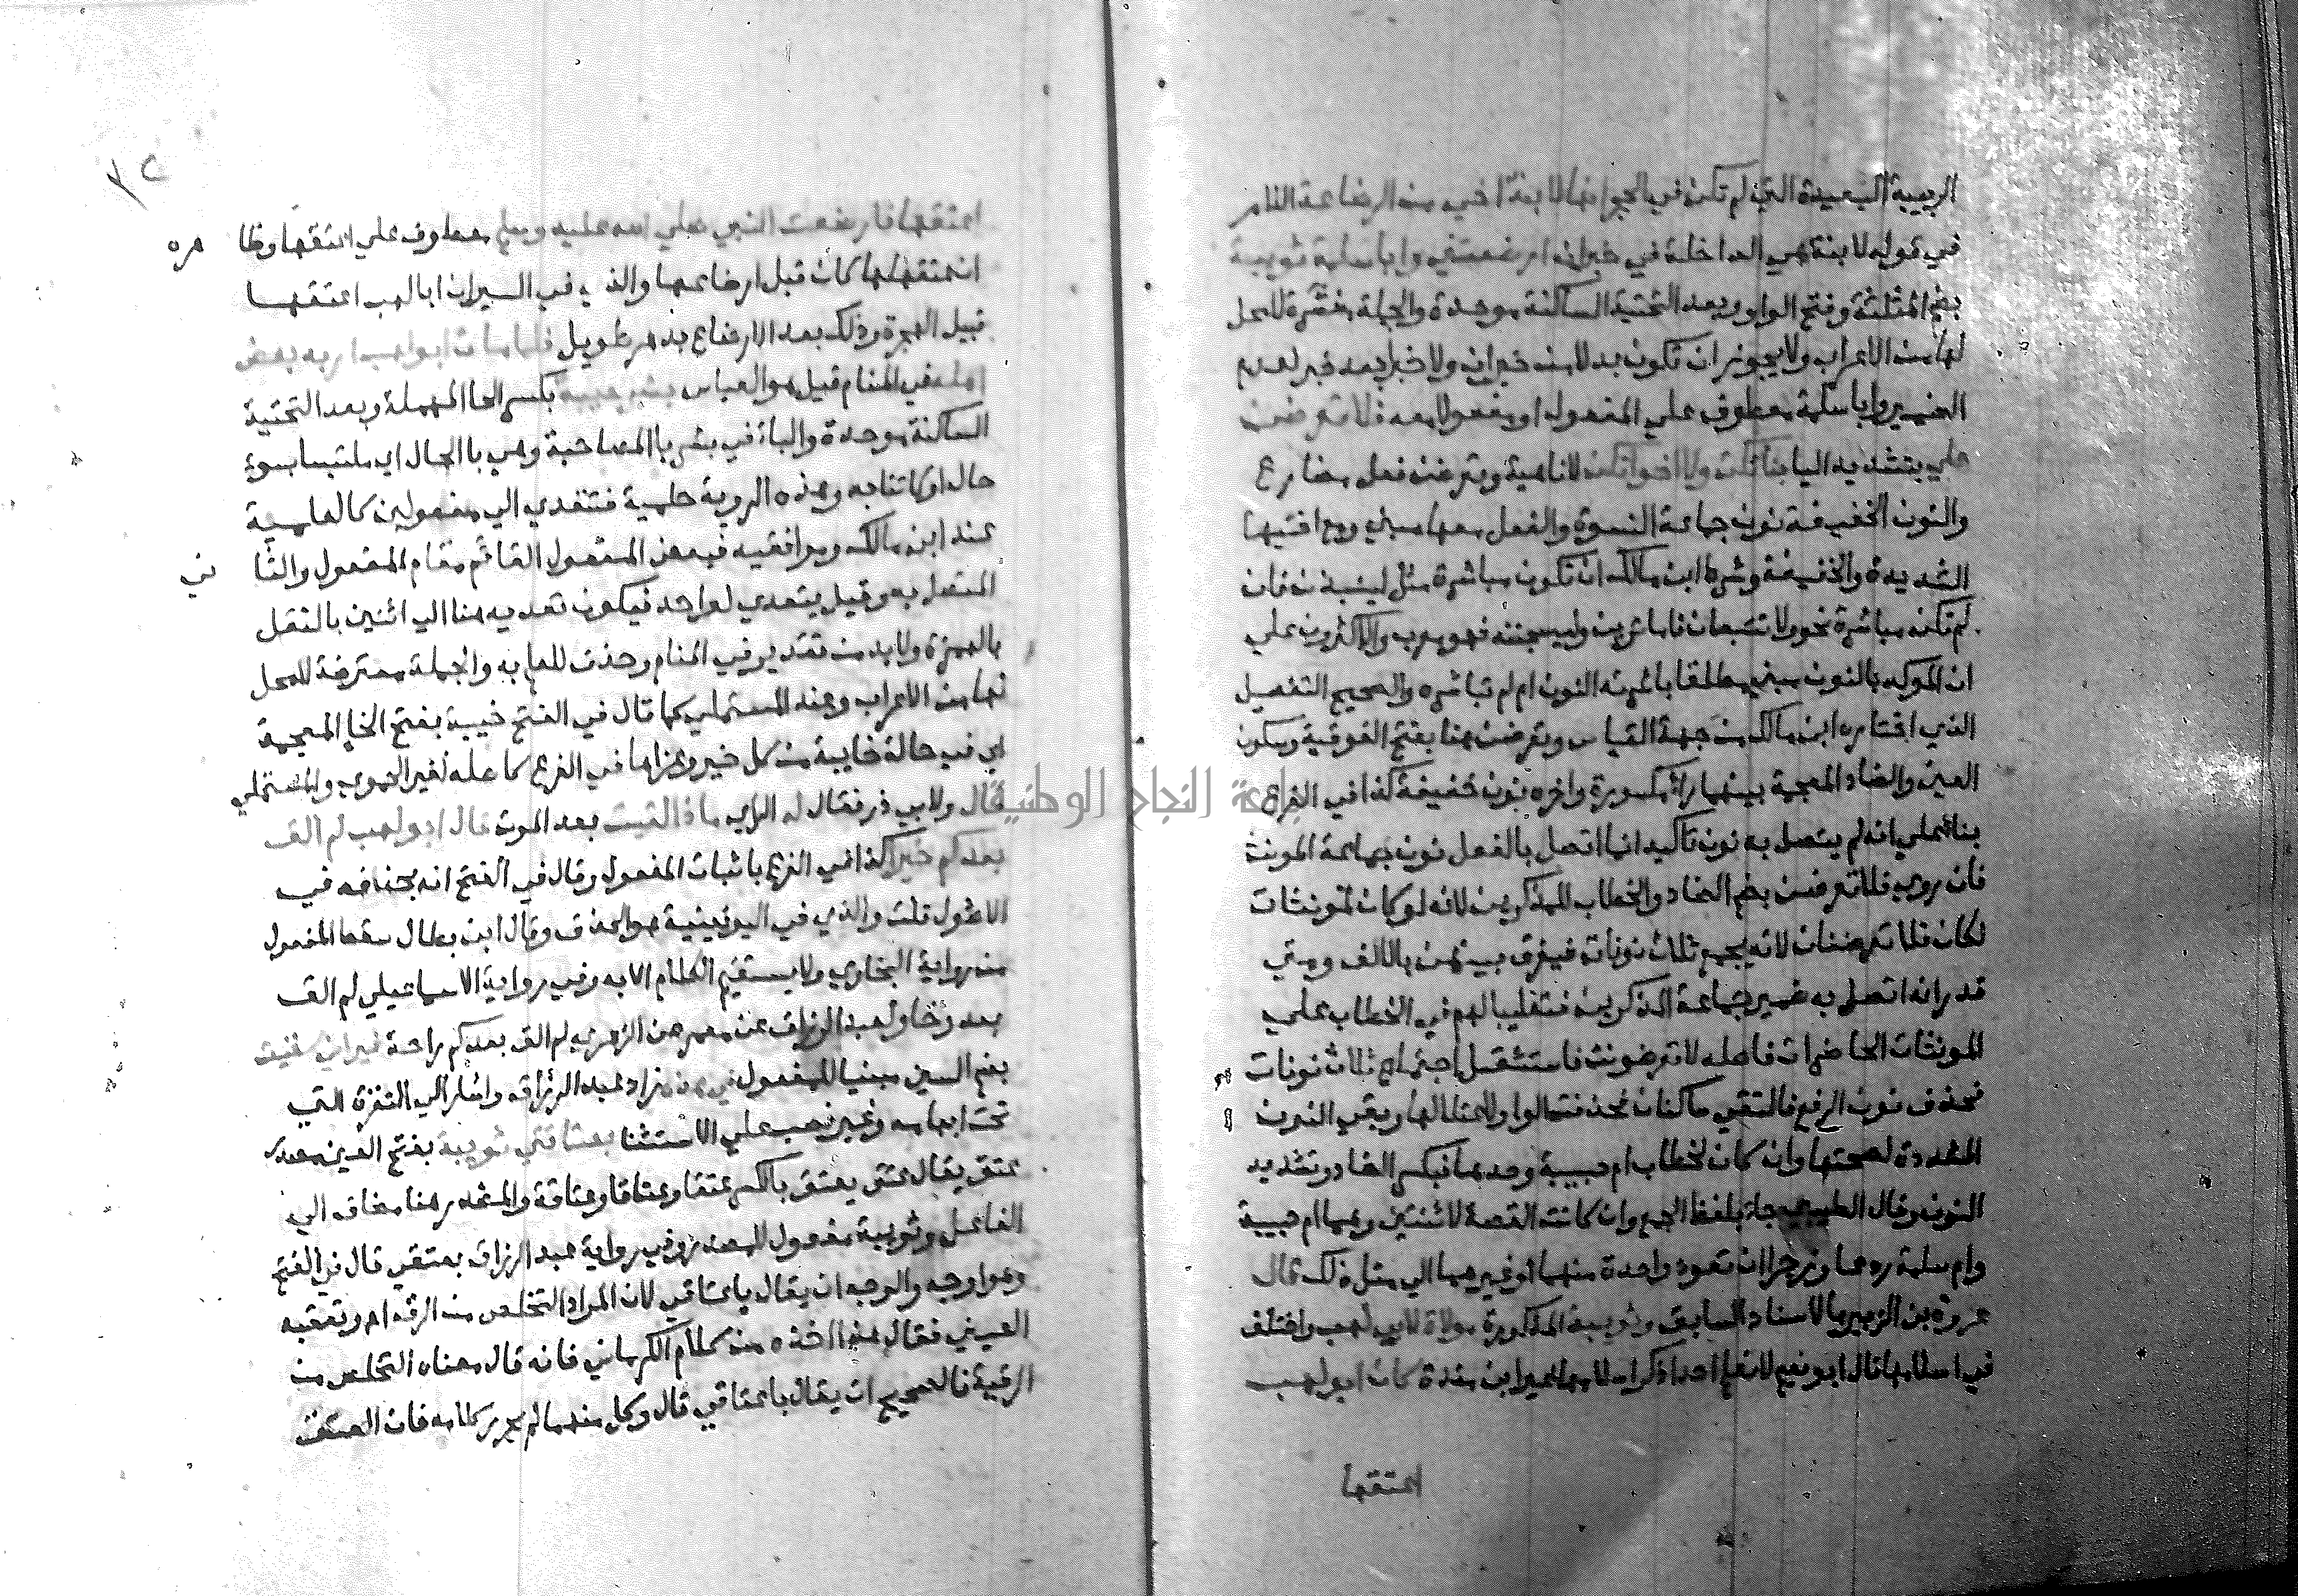 الربيبة البعيدة التي لم تكن في الحجر انها لابنة اخي من الرضاعة اللام
في قوله لابنة هي الداخلة في خبران ارضعتني وابا سلمة ثويبة
بضم المثلثة وفتح الواو وبعد التحتية الساكنة موحدة والجملة مفسرة لا محل
لها من الاعراب ولا يجوز ان تكون بدلا من خبران ولا خبرا بعد خبر لعدم
الضمير وابا سلمة معطوف على المفعول او مفعول معه فلا تعرضن
علي بتشديد اليا بناتكن ولا اخواتكن لا ناهية وتعرضن فعل مضارع
والنون الخفيفة نون جماعة النسوة والفعل معها مبني ومع اختيها
الشديدة والخفيفة وشرط ابن مالك ان تكون مباشرة مثل لينبذن فان
لم تكن مباشرة نحو ولا تتبعان فاما ترين وليسجننه فهو معرب والاكثرون على
ان الموكد بالنون مبني مطلقا باشرته النون ام لم تباشره والصحيح التفصيل
الذي اختاره ابن مالك من جهة القياس وتعرضن هنا بفتح الفوقية وسكون
العين والضاد المعجمة بينهما را مكسورة واخره نون خفيفة كذا في الفرع
بنا على انه لم يتصل به نون تاكيد انما اتصل بالفعل نون جماعة المونث
فان روي فلا تعرضن بضم الضاد والخطاب للمذكرين لانه لو كان لمونثات
لكان فلا تعرضنان لانه يجمع ثلاث نونات فيفرق بينهن بالالف ومتي
قدر انه اتصل به ضمير جماعة المذكرين فتغليبا لهم في الخطاب علي
المونثات الحاضرات فاصله لا تعرضونن فاستثقل اجتماع ثلاث نونات
فحذف نون الرفع فالتقى ساكنان فحذفت الواو ولاعتلالها وبقي النون
المشددة لصحتها وان كان الخطاب ام حبيبة وحدها فبكسر الضاد وتشديد
النون وقال الطيبي جا بلفظ الجمع وان كانت القصة لاثنتين وهما ام حبيبة
وام سلمة ردعا وزجرا ان تعود واحدة منهما او غيرهما الي مثل ذلك قال
عروة بن الزبير بالاسناد السابق وثويبة المذكورة مولاة لابي لهب واختلف
في اسلامها قال ابو نعيم لا نعلم احدا ذكر اسلامها غير ابن مندة كان ابو لهب
اعتقها
اعتقها فارضعت النبي صلى الله عليه وسلم معطوف على اعتقها وظاهره
ان عتقه لها كان قبل ارضاعها والذي في السير ان ابا لهب اعتقها
قبيل الهجرة وذلك بعد الارضاع بدهر طويل فلما مات ابو لهب اريه بعض
اهله في المنام قيل هو العباس بشر حيبة بكسر الحا المهملة وبعد التحتية
الساكنة موحدة والبا في بشر با المصاحبة وهي با الحال اي ملتبسا بسوء
حال او كاتنا به وهذه الروية حلمية فتتعدي الي مفعولين كالعلمية
عند ابن مالك وموافقيه فبعض المفعول القائم مقام المفعول والثاني
المتصل به وقيل يتعدي لواحد فيكون تعديه هنا الي اثنين بالنقل
بالهمزة ولا بد من تقدير في المنام وحذف للعلم به والجملة معترضة لا محل
لها من الاعراب وعند المستملي كما قال في الفتح خيبة بفتح الخا المعجمة
اي في حالة خايبة من كل خير وعزاها في الفرع كاصله لغير الحموي والمستملي
قال ولابي ذر فقال له الراي ماذا لقيت بعد الموت قال ابو لهب لم الق
بعدكم خيرا كذا في الفرع باثبات المفعول وقال في الفتح انه بحذفه في
الاصول قلت والذي في اليونينية هو الحذف وقال ابن بطال سقط المفعول
من رواية البخاري ولا يستقيم الكلام الا به وفي رواية الاسماعيلي لم الق
بعد رخا ولعبد الرزاق عن معمر عن الزهري لم الق بعدكم راحة غير اني سقيت
بضم السين مبنيا للمفعول في هذه زاد عبد الرزاق واشار الي النقرة التي
تحت ابهامه وغير نصب على الاستثنا بعتاقتي ثويبة بفتح العين مصدر
عتق يقال عتق يعتق بالكسر عتقا وعتاقا وعتاقة والمصدر هنا مضاف الي
الفاعل وثويبة مفعول للمصدر وفي رواية عبد الرزاق بعتقي قال في الفتح
وهو اوجه والوجه ان يقال باعتاقي لان المراد التخلص من الرق اه وتعقبه
العيني فقال هذا اخذه من كلام الكرماني فانه قال معناه التخلص من
الرقبة فالصحيح ان يقال باعتاقي قال وكل منهما لم يحرر كلامه فان العتق